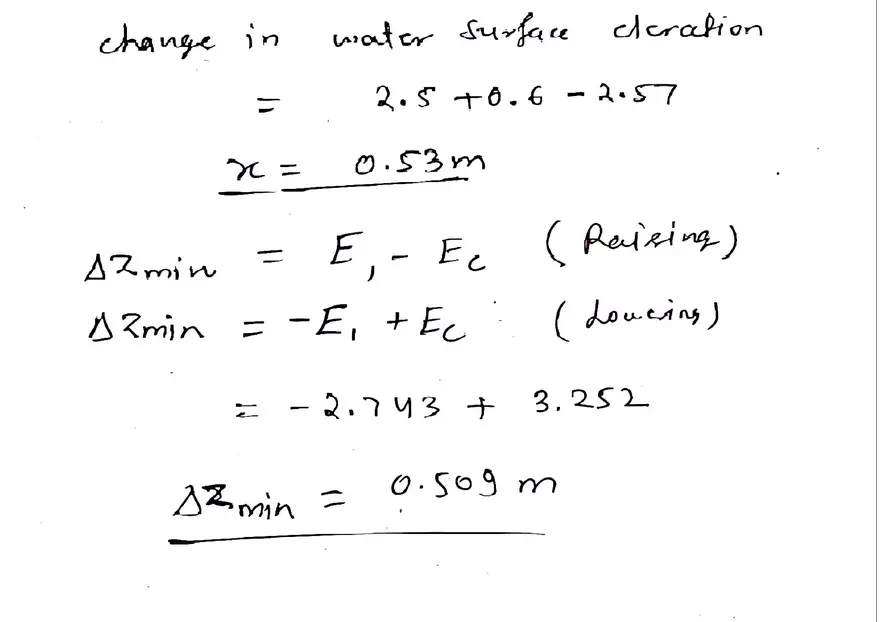 change in water surface elevation
= 2.5 + 0.6 - 2.57
x = 0.53 m
ΔZmin = E₁ - Ec (Raising)
ΔZmin = -E₁ + Ec (Lowering)
= - 2.743 + 3.252
ΔZmin = 0.509 m